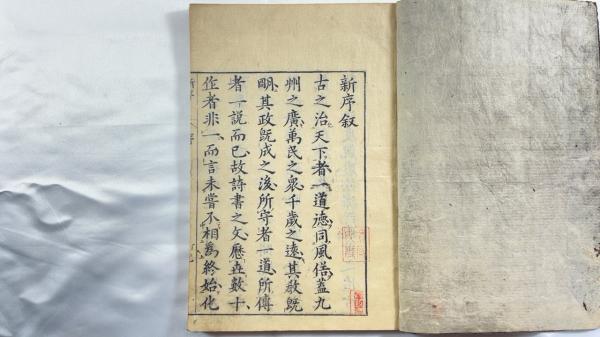 新序叙
古之治天下者一道德同風俗蓋九
州之廣萬民之衆千歲之遠其敎旣
明其政旣成之後所守者一道所傳
者一說而已故詩書之文歷世數十
作者非一而言未嘗不相爲終始化